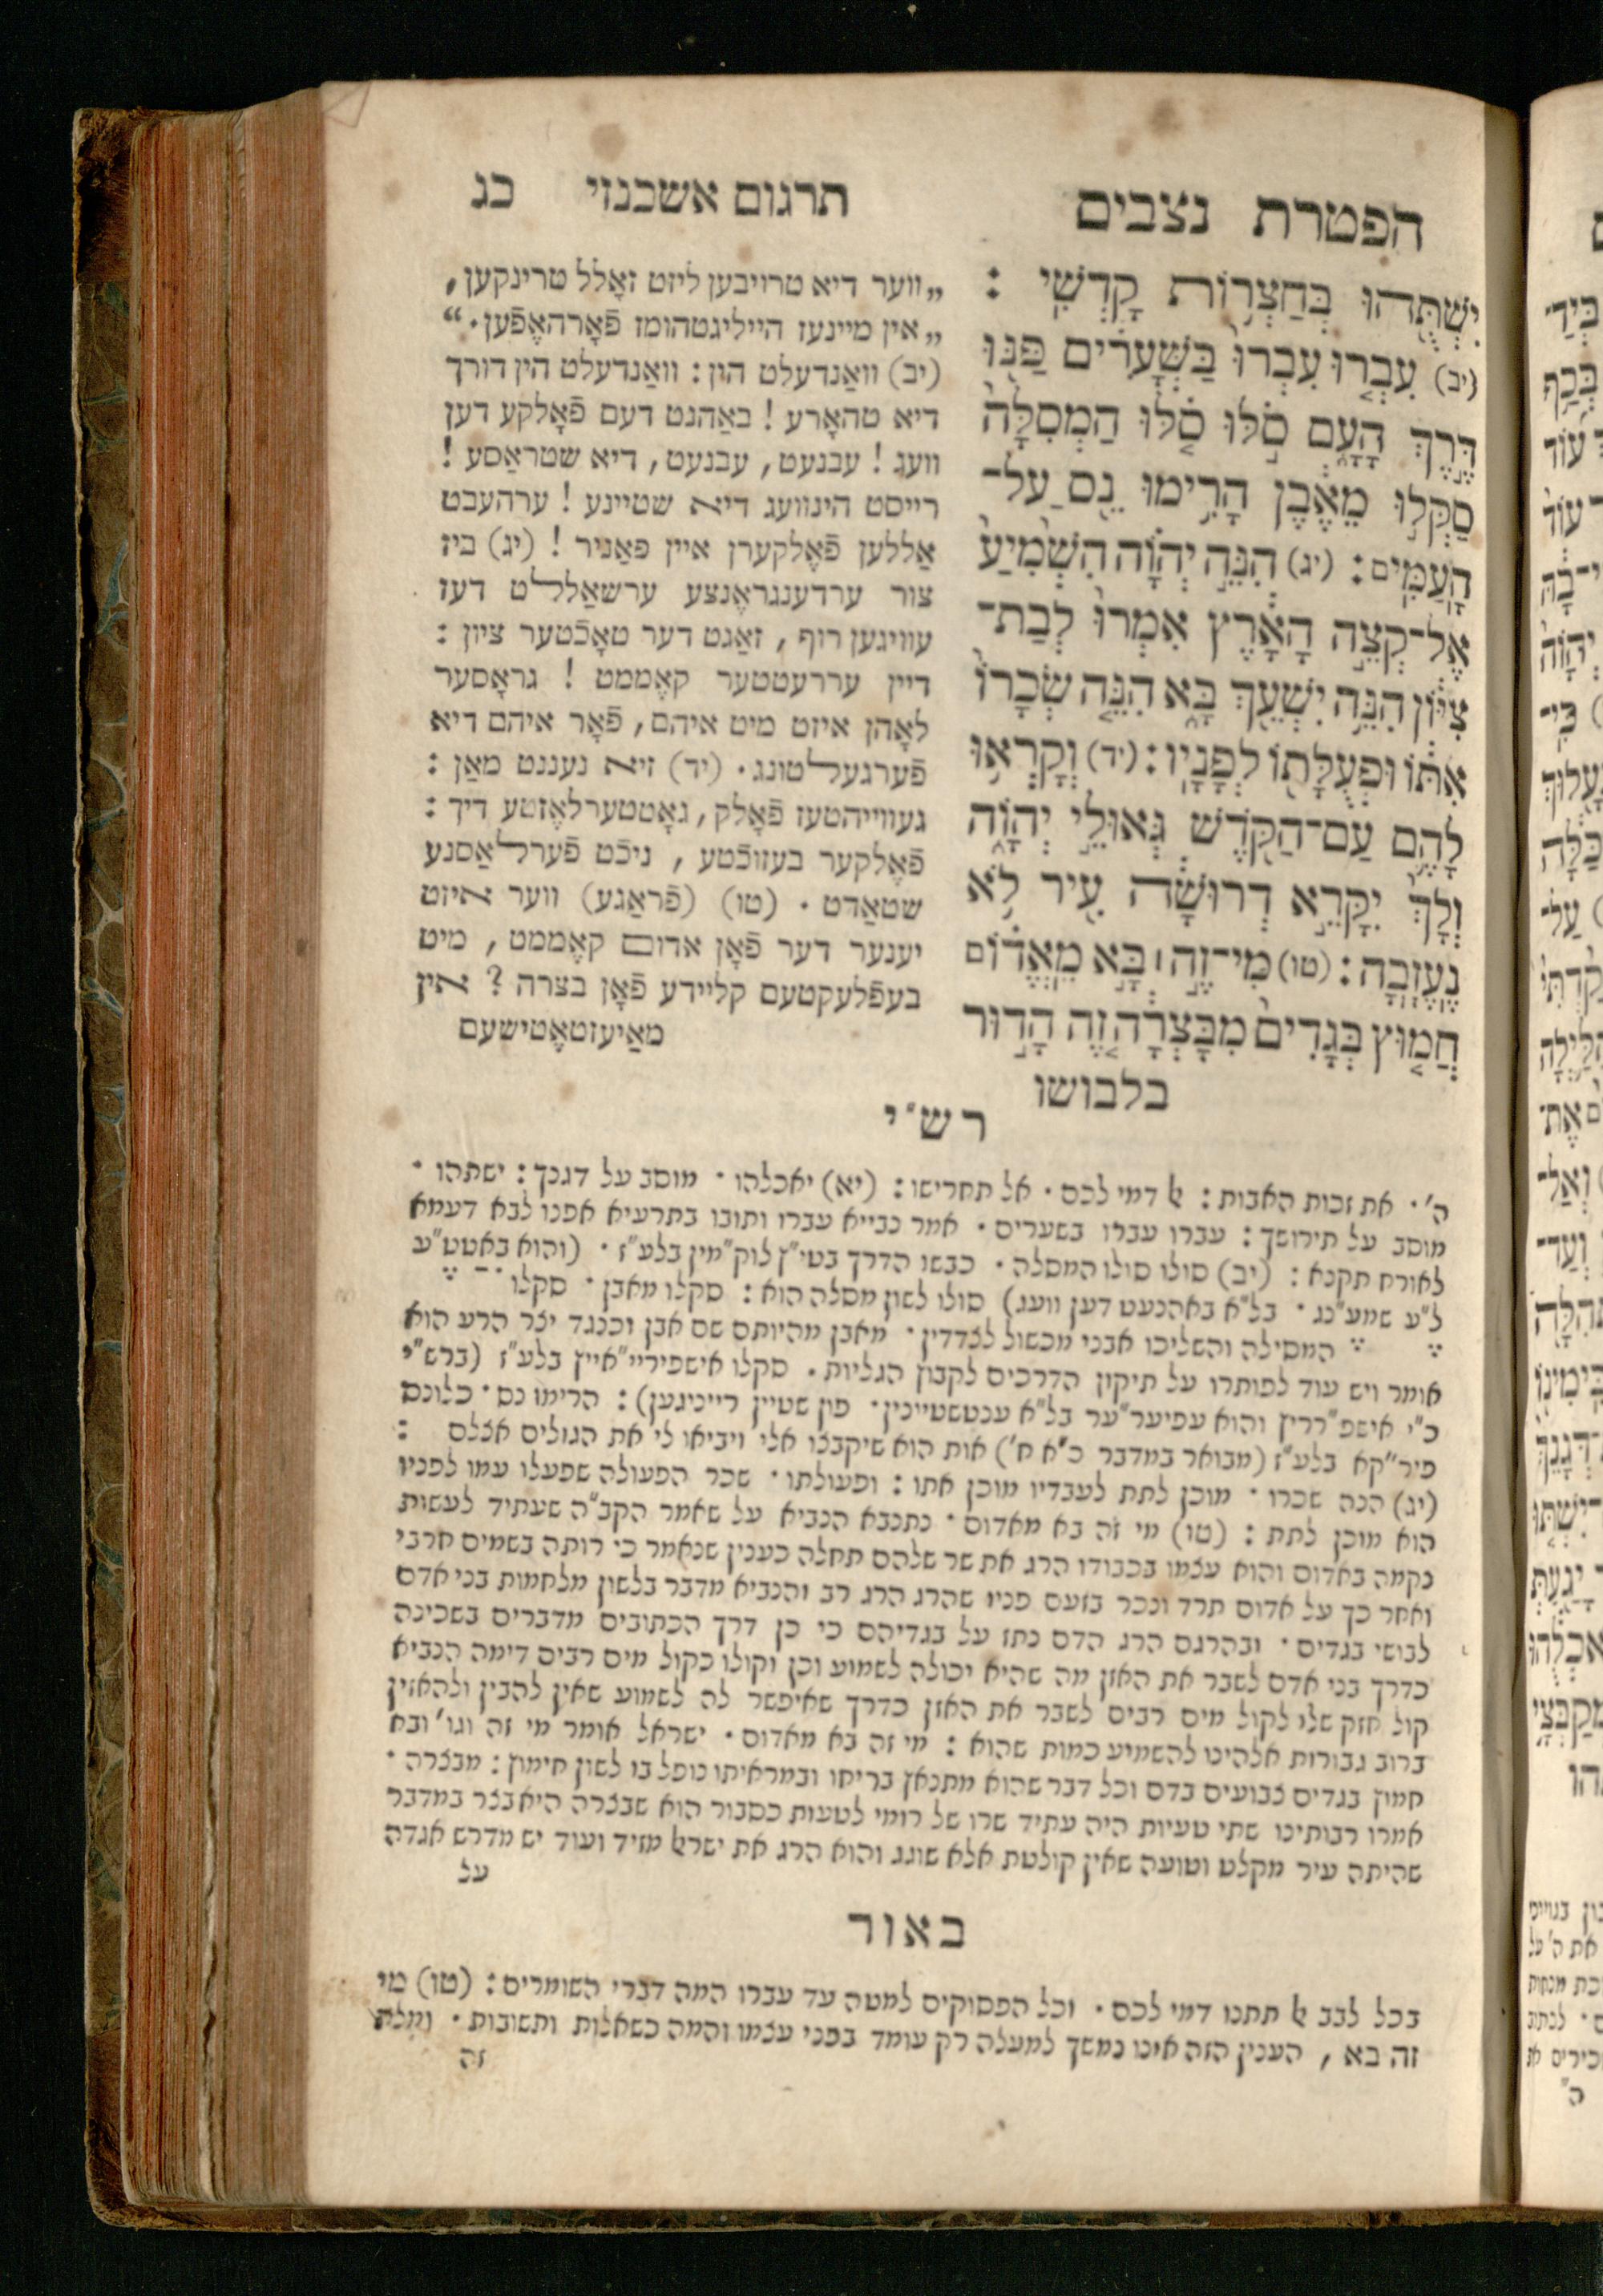 הפטרת נצבים
תרגום אשכנזי כג
יִשְׁתֻּהוּ בְּחַצְרוֹת קָדְשִׁי :
(יב) עִבְרוּ עִבְרוּ בַּשְּׁעָרִים פַּנּוּ
דֶּרֶךְ הָעָם סֹלּוּ סֹלּוּ הַמְסִלָּה
סַקְּלוּ מֵאֶבֶן הָרִימוּ נֵס עַל־
הָעַמִּים : (יג) הִנֵּה יְהוָֹה הִשְׁמִיעַ
אֶל־קְצֵה הָאָרֶץ אִמְרוּ לְבַת־
צִיּוֹן הִנֵּה יִשְׁעֵךְ בָּא הִנֵּה שְׂכָרוֹ
אִתּוֹ וּפְעֻלָּתוֹ לְפָנָיו : (יד) וְקָרְאוּ
לָהֶם עַם־הַקֹּדֶשׁ גְּאוּלֵי יְהוָֹה
וְלָךְ יִקָּרֵא דְרוּשָׁה עִיר לֹא
נֶעֱזָבָה : (טו) מִי־זֶה ׀ בָּא מֵאֱדוֹם
חֲמוּץ בְּגָדִים מִבָּצְרָה זֶה הָדוּר
בלבושו
„ווער דיא טרויבען ליזט זאָלל טרינקען,
„אין מיינעז הייליגטהומז פֿאָרהאֶפֿען.“
(יב) וואַנדעלט הין : וואַנדעלט הין דורך
דיא טהאָרע ! באַהנט דעם פֿאָלקע דען
וועג ! עבנעט, עבנעט, דיא שטראַסע !
רייסט הינוועג דיא שטיינע ! ערהעבט
אַללען פֿאֶלקערן איין פאַניר ! (יג) ביז
צור ערדענגראֶנצע ערשאַללט דעז
עוויגען רוף, זאַגט דער טאָכֿטער ציון :
דיין עררעטטער קאֶממט ! גראָסער
לאָהן איזט מיט איהם, פֿאָר איהם דיא
פֿערגעלטונג. (יד) זיא נעננט מאַן :
געווייהטעז פֿאָלק, גאָטטערלאֶזטע דיך :
פֿאֶלקער בעזוכֿטע, ניכֿט פֿערלאַסנע
שטאַדט. (טו) (פֿראַגע) ווער איזט
יענער דער פֿאָן אדום קאֶממט, מיט
בעפֿלעקטעם קליידע פֿאָן בצרה ? אין
מאַיעזטאֶטישעם
רש״י
ה׳. את זכות האבות : אל דמי לכם. אל תחרישו : (יא) יאכלהו. מוסב על דגנך : ישתהו.
מוסב על תירושך : עברו עברו בשערים. אמר נבייא עברו ותובו בתרעיא אפנו לבא דעמא
לאורח תקנא : (יב) סולו סולו המסלה. כבשו הדרך בטי״ץ לוק״מין בלע״ז. (והוא באטט״ע
ל״ע שמע״נג. בל״א באהנעט דען וועג) סולו לשון מסלה הוא : סקלו מאבן. סקלו
המסילה והשליכו אבני מכשול לצדדין. מאבן מהיותם שם אבן וכנגד יצר הרע הוא
אומר ויש עוד לפותרו על תיקון הדרכים לקבוץ הגליות. סקלו אישפיריי״אייץ בלע״ז (ברש״י
כ״י אישפ״רריץ והוא עפיער״ער בל״א ענטשטיינין. פון שטיין רייניגען) : הרימו נס. כלונס
פיר״קא בלע״ז (מבואר במדבר כ״א ח׳) אות הוא שיקבצו אלי ויביאו לי את הגולים אצלם :
(יג) הנה שכרו. מוכן לתת לעבדיו מוכן אתו : ופעולתו. שכר הפעולה שפעלו עמו לפניו
הוא מוכן לתת : (טו) מי זה בא מאדום. נתנבא הנביא על שאמר הקב״ה שעתיד לעשות
נקמה באדום והוא עצמו בכבודו הרג את שר שלהם תחלה כענין שנאמר כי רותה בשמים חרבי
ואחר כך על אדום תרד ונכר בזעם פניו שהרג הרג רב והנביא מדבר בלשון מלחמות בני אדם
לבושי בגדים. ובהרגם הרג הדם נתז על בגדיהם כי כן דרך הכתובים מדברים בשכינה
כדרך בני אדם לשבר את האזן מה שהיא יכולה לשמוע וכן וקולו כקול מים רבים דימה הנביא
קול חזק שלו לקול מים רבים לשבר את האזן כדרך שאיפשר לה לשמוע שאין להבין ולהאזין
ברוב גבורות אלהינו להשמיע כמות שהוא : מי זה בא מאדום. ישראל אומר מי זה וגו׳ ובא
חמוץ בגדים צבועים בדם וכל דבר שהוא מתנאץ בריחו ובמראיתו נופל בו לשון חימוץ : מבצרה.
אמרו רבותינו שתי טעיות היה עתיד שרו של רומי לטעות כסבור הוא שבצרה היא בצר במדבר
שהיתה עיר מקלט וטועה שאין קולטת אלא שוגג והוא הרג את ישראל מזיד ועוד יש מדרש אגדה
על
באור
בכל לבב אל תתנו דמי לכם. וכל הפסוקים למטה עד עברו המה דברי השומרים : (טו) מי
זה בא, הענין הזה אינו נמשך למעלה רק עומד בפני עצמו והמה כשאלות ותשובות. ומלת
זה